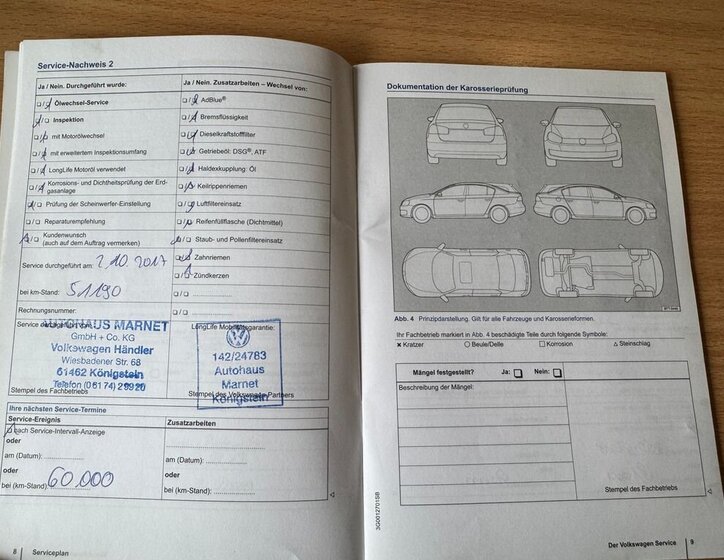 Service-Nachweis 2
Ja / Nein. Durchgeführt wurde:
Ölwechsel-Service
Inspektion
mit Motorölwechsel
mit erweitertem Inspektionsumfang
LongLife Motoröl verwendet
Korrosions- und Dichtheitsprüfung der Erd-
gasanlage
Prüfung der Scheinwerfer-Einstellung
Reparaturempfehlung
Kundenwunsch
(auch auf dem Auftrag vermerken)
Service durchgeführt am: 2.10.2017
bei km-Stand: 51190
Rechnungsnummer:
Ja / Nein. Zusatzarbeiten – Wechsel von:
AdBlue®
Bremsflüssigkeit
Dieselkraftstofffilter
Getriebeöl: DSG®, ATF
Haldexkupplung: Öl
Keilrippenriemen
Luftfiltereinsatz
Reifenfüllflasche (Dichtmittel)
Staub- und Pollenfiltereinsatz
Zahnriemen
Zündkerzen
Service durchgeführt von:
AUTOHAUS MARNET
GmbH + Co. KG
Volkswagen Händler
Wiesbadener Str. 68
61462 Königstein
Telefon (06174) 29920
Stempel des Fachbetriebs
LongLife Mobilitätsgarantie:
142/24783
Autohaus
Marnet
Königstein
Stempel des Volkswagen Partners
Ihre nächsten Service-Termine
Service-Ereignis
nach Service-Intervall-Anzeige
oder
am (Datum):
oder
bei (km-Stand): 60.000
Zusatzarbeiten
am (Datum):
oder
bei (km-Stand):
8 Serviceplan
Dokumentation der Karosserieprüfung
Abb. 4 Prinzipdarstellung. Gilt für alle Fahrzeuge und Karosserieformen.
Ihr Fachbetrieb markiert in Abb. 4 beschädigte Teile durch folgende Symbole:
Kratzer Beule/Delle Korrosion Steinschlag
Mängel festgestellt? Ja: Nein:
Beschreibung der Mängel:
Stempel des Fachbetriebs
3G0012701SB
Der Volkswagen Service 9